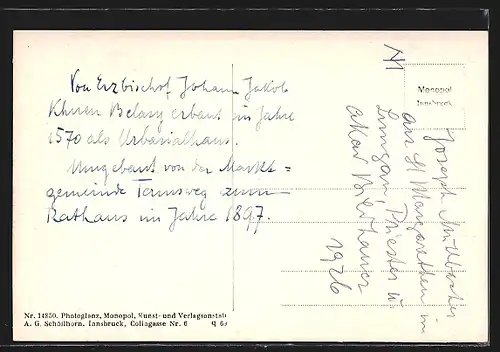 Von Erzbischof Johann Jakob
Khuen Belasy erbaut im Jahre
1570 als Urbarialhaus.
Umgebaut von der Markt=
gemeinde Tamsweg zum
Rathaus im Jahre 1897.
Monopol
Innsbruck
Joseph
aus St Margarethen im
Lungau, Priester u.
akad Bildhauer
1926
Nr. 14850. Photoglanz, Monopol, Kunst- und Verlagsanstalt
A. G. Schöllhorn, Innsbruck, Colingasse Nr. 6 q 69